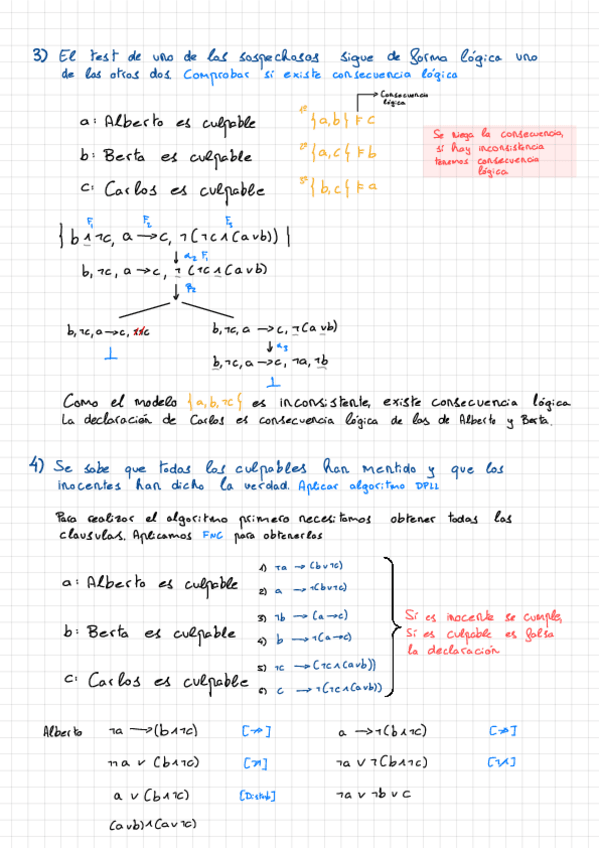 3) El test de uno de los sospechosos sigue de forma lógica uno
de los otros dos. Comprobar si existe consecuencia lógica
Consecuencia
lógica
a: Alberto es culpable
1º {a,b} ⊨ c
b: Berta es culpable
2º {a,c} ⊨ b
c: Carlos es culpable
3º {b,c} ⊨ a
Se niega la consecuencia,
si hay inconsistencia
tenemos consecuencia
lógica
F₁ F₂ F₃
{b∧¬c, a→c, ¬(¬c∧(a∨b))}
α₂ F₁
b, ¬c, a→c, ¬(¬c∧(a∨b)
β₂
b, ¬c, a→c, ¬¬c
b, ¬c, a→c, ¬(a∨b)
⊥
α₃
b, ¬c, a→c, ¬a, ¬b
⊥
Como el modelo {a,b,¬c} es inconsistente, existe consecuencia lógica
La declaración de Carlos es consecuencia lógica de los de Alberto y Berta.
4) Se sabe que todos los culpables han mentido y que los
inocentes han dicho la verdad. Aplicar algoritmo DPLL
Para realizar el algoritmo primero necesitamos obtener todas las
clausulas. Aplicamos FNC para obtenerlas
1) ¬a → (b∨¬c)
a: Alberto es culpable
2) a → ¬(b∨¬c)
3) ¬b → (a→c)
b: Berta es culpable
4) b → ¬(a→c)
5) ¬c → (¬c∧(a∨b))
c: Carlos es culpable
6) c → ¬(¬c∧(a∨b))
Si es inocente se cumple,
Si es culpable es falsa
la declaración
Alberto ¬a → (b∧¬c) [→] a → ¬(b∧¬c) [→]
¬¬a ∨ (b∧¬c) [¬] ¬a ∨ ¬(b∧¬c) [¬∧]
a ∨ (b∧¬c) [Distrib] ¬a ∨ ¬b ∨ c
(a∨b)∧(a∨¬c)